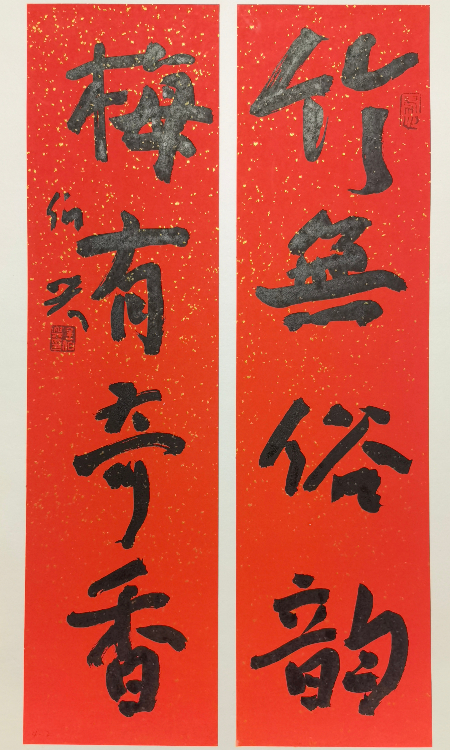 竹無俗韵
梅有奇香